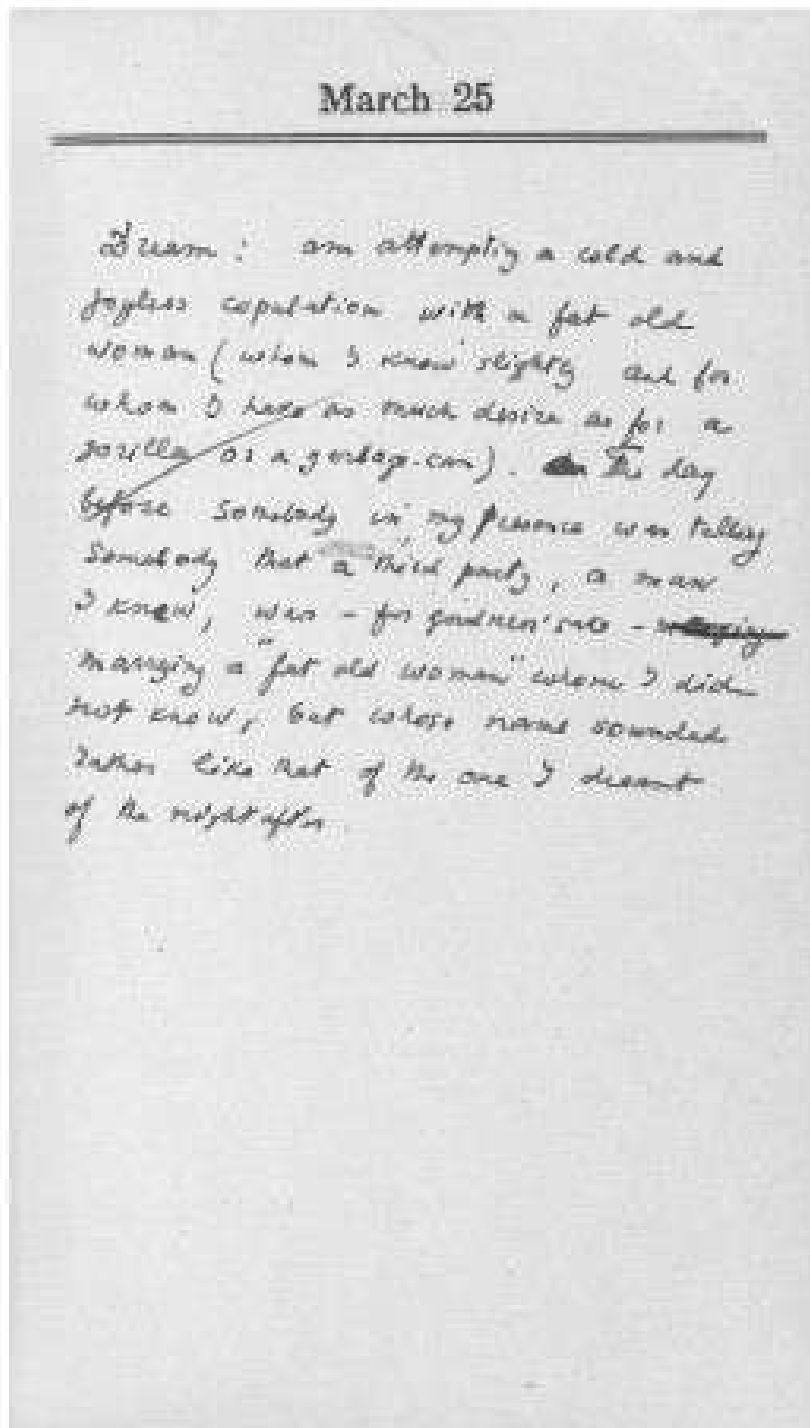 March 25
Dream: am attempting a cold and
joyless copulation with a fat old
woman (whom I know slightly and for
whom I have as much desire as for a
gorilla or a garbage-can). The day
before somebody in my presence was telling
somebody that a third party, a man
I knew, was - for goodness' sake -
marrying a "fat old woman" whom I did
not know, but whose name sounded
rather like that of the one I dreamt
of the night after.